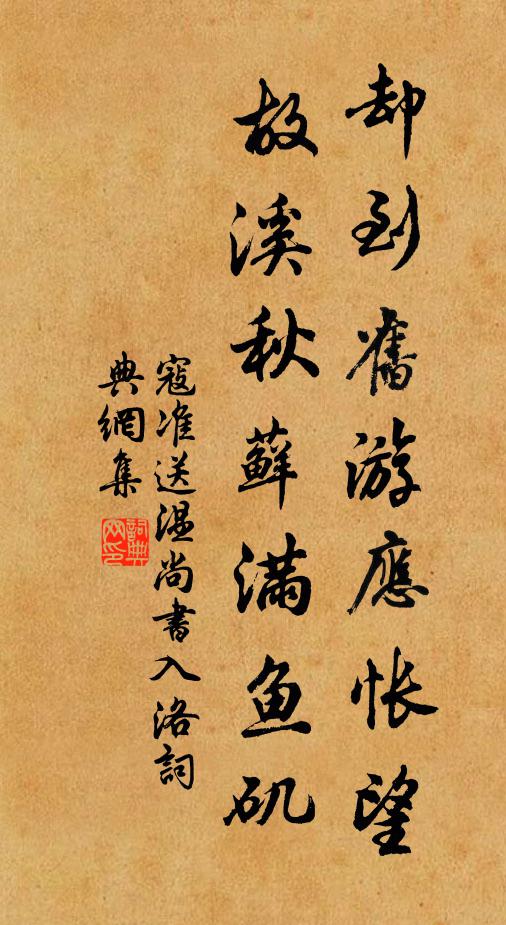 却到舊游應悵望
故溪秋蘚滿鱼矶
寇准送温尚書入洛詞
典網集
詞典网印